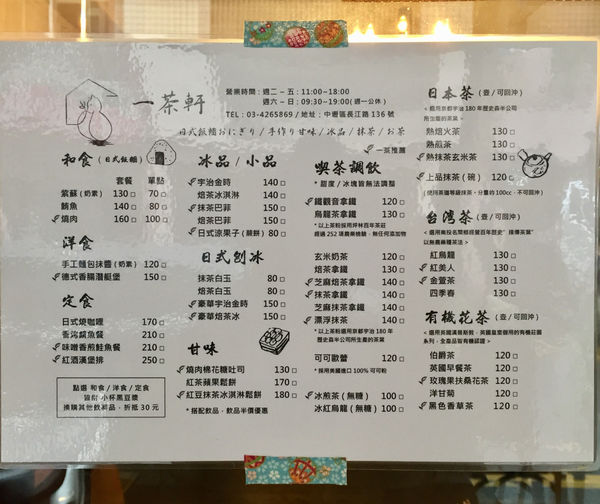 一茶軒
營業時間：週二 ~ 五：11:00~18:00
週六 ~ 日：09:30~19:00(週一公休)
TEL：03-4265869 / 地址：中壢區長江路 136 號
日式飯糰おにぎり / 手作り甘味 / 冰品 / 抹茶 / お茶
一茶推薦
和食（日式飯糰）
套餐 單點
紫蘇 (奶素) 130 70
鮪魚 140 80
燒肉 160 100
洋食
手工麵包抹醬 (奶素) 120
德式香腸潛艇堡 150
定食
日式燒咖哩 170
香鬆鯖魚餐 210
味噌香煎鮭魚餐 210
紅酒漢堡排 250
點選 和食 / 洋食 / 定食
皆附 小杯黑豆漿
換購其他飲品，折抵 30 元
冰品 / 小品
宇治金時 140
焙茶冰淇淋 140
抹茶巴菲 150
焙茶巴菲 150
日式涼果子 ( 蕨餅 ) 80
日式刨冰
抹茶白玉 80
焙茶白玉 80
豪華宇治金時 150
豪華焙茶冰 150
甘味
燒肉棉花糖吐司 130
紅茶蘋果鬆餅 170
紅豆抹茶冰淇淋鬆餅 180
* 搭配飲品，飲品半價優惠
喫茶調飲
* 甜度 / 冰塊皆無法調整
鐵觀音拿鐵 120
烏龍茶拿鐵 130
* 以上茶粉採用坪林百年茶莊
經過 252 項農藥檢驗，無任何添加物
玄米奶茶 120
焙茶拿鐵 130
芝麻焙茶拿鐵 130
抹茶拿鐵 130
芝麻抹茶拿鐵 130
漂浮抹茶 130
* 以上茶粉選用京都宇治 180 年
歷史森半公司所生產的茶葉
可可歐蕾 120
* 採用美國進口 100% 可可粉
冰煎茶 ( 無糖 ) 100
冰紅烏龍 ( 無糖 ) 100
日本茶（壺 / 可回沖）
< 選用京都宇治 180 年歷史森半公司
所生產的茶葉 >
熱焙火茶 130
熱煎茶 130
熱抹茶玄米茶 130
上品抹茶 ( 碗 ) 120
(使用茶道等級抹茶，分量約 100cc，不可回沖)
台湾茶（壺 / 可回沖）
以無農藥種茶法 >
紅烏龍 130
紅美人 130
金萱茶 130
四季春 130
有機花茶（壺 / 可回沖）
系列，全產品皆有機認證 >
伯爵茶 120
英國早餐茶 120
玫瑰果扶桑花茶 120
洋甘菊 120
黑色香草茶 120